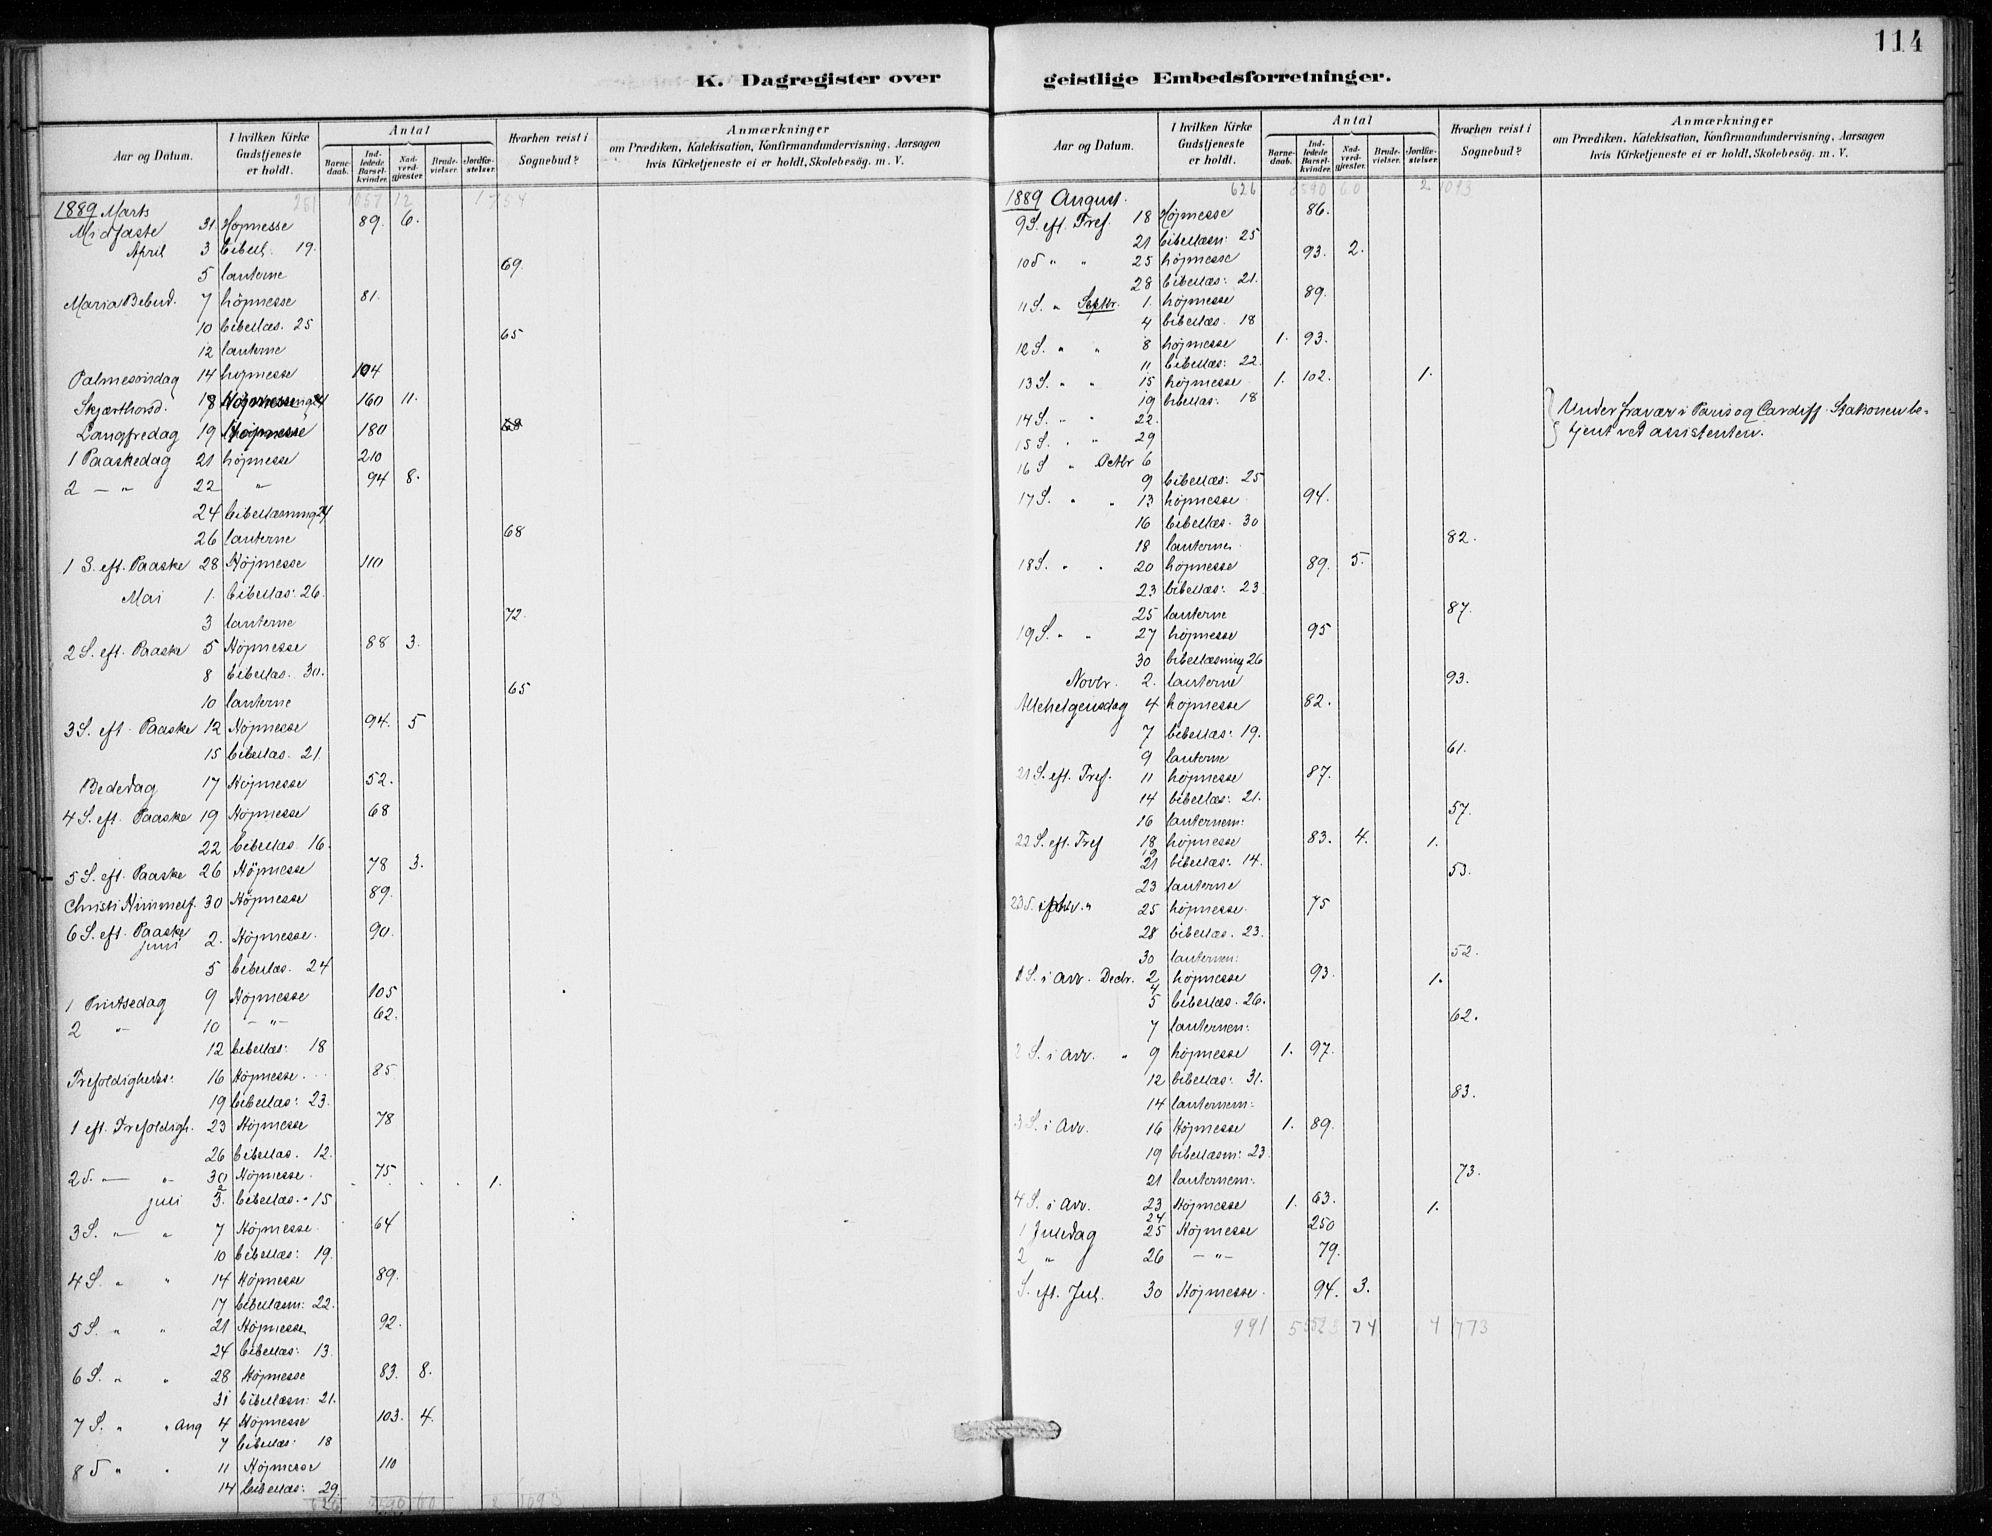 114
K. Dagregister over geistlige Embedsforretninger.
Aar og Datum. I hvilken Kirke Gudstjeneste er holdt. Antal Barnedaab. Indledede Barselkvinder. Nadverdgjæster Brudevielser. Jordfæstelser. Hvorhen reist i Sognebud? Anmærkninger om Prædiken, Katekisation, Konfirmandundervisning, Aarsagen hvis Kirketjeneste ei er holdt, Skolebesög. m. V.
251 1057 12 1 754
1889 Marts
Midfaste 31 Højmesse 89. 6.
April 3 bibell. 19.
5 lanterne 69.
Maria Bebud. 7 højmesse 81.
10 bibellæs. 25
12 lanterne 65
Palmesöndag 14 højmesse 104
Skjærthorsd. 18 Højmesse 160 11.
Langfredag 19 Højmesse 180
1 Paaskedag 21 højmesse 210
2 — " 22 " 94 8.
24 bibellæsning 24
26 lanterne 68
1 S. eft. Paaske 28 Højmesse 110
Mai 1. bibellæs: 26.
3 lanterne 72.
2 S. eft. Paaske 5 Højmesse 88 3.
8 bibellæs. 30.
10 lanterne 65
3 S. eft. Paaske 12 Højmesse 94. 5
15 bibellæs. 21.
Bededag 17 Højmesse 52.
4 S. eft. Paaske 19 Højmesse 68
22 bibellæs. 16.
5 S. eft. Paaske 26 Højmesse 78 3.
Christi Himmelf. 30 Højmesse 89.
6 S. eft. Paaske
juni 2. Højmesse. 90.
5 bibellæs. 24
1 Pintsedag 9 Højmesse 105
2 " 10 — " — 62.
12 bibellæs: 18
Trefoldigheds: 16 Højmesse. 85
19 bibellæs: 23.
1 eft. Trefoldigh. 23 Højmesse 78
26 bibellæs. 12.
2 S. — " 30 Højmesse. 75. 1.
juli 3. bibellæs. 15
3 S. — " 7 Højmesse. 64
10 bibellæs: 19.
4 S. " " 14 Højmesse 89.
17 bibellæsn: 22.
5 S. " " 21 Højmesse 92.
24 bibellæs: 13.
6 S. " " 28 Højmesse 83. 8.
31 bibellæsn: 21.
7 S. " " Aug 4 Højmesse 103. 4.
7 bibellæs: 18
8 S " " 11 Højmesse 110
14 bibellæs: 29.
626 2590 60 2 1093
Aar og Datum. I hvilken Kirke Gudstjeneste er holdt. Antal Barnedaab. Indledede Barselkvinder. Nadverdgjæster Brudevielser. Jordfæstelser. Hvorhen reist i Sognebud? Anmærkninger om Prædiken, Katekisation, Konfirmandundervisning, Aarsagen hvis Kirketjeneste ei er holdt, Skolebesög. m. V.
626 2590 60 2 1093
1889 August.
9 S. eft. Tref. 18 Højmesse 86.
21 bibellæsn: 25
10 S " " 25 højmesse 93. 2.
28 bibellæs: 21.
11 S. " Septbr. 1. højmesse 89.
4 bibellæs. 18
12 S. " " 8 højmesse 1. 93.
11 bibellæs: 22.
13 S. " " 15 højmesse 1. 102. 1.
19 bibellæs: 18
14 S. " " 22. Under fravær i Paris og Cardiff. Stationen be-
15 S. " " 29 tjent ved assistenten.
16 S " Octbr 6
9 bibellæs: 25
17 S. " " 13 højmesse 94.
16 bibellæs. 30
18 lanterne. 82.
18 S. " " 20 højmesse 89. 5.
23 bibellæs: 23.
25 lanterne 87.
19 S. " " 27 højmesse 95
30 bibellæsning 26
Novbr. 2. lanterne 93.
Allehelgensdag 4 højmesse 82.
7 bibellæs: 19.
9 lanterne 61.
21 S. eft. Tref. 11 højmesse 87.
14 bibellæs: 21.
16 lanternem: 57.
22 S. eft. Tref 18 højmesse 83. 4. 1.
19
21 bibellæs: 14.
23 lanterne 53.
23 S. " 25 højmesse. 75
28 bibellæs. 23.
30 lanternen: 52.
1 S. i Adv. Decbr. 2 højmesse 93. 1.
4
5 bibellæs. 26.
7 lanternen: 62.
2 S. i Adv. " 9 højmesse 1. 97.
12 bibellæs: 31.
14 lanternem: 83.
3 S. i Adv. 16 Højmesse 1. 89.
19 bibellæsn: 23.
21 lanternem: 73.
4 S. i Adv. 23 Højmesse 1. 63. 1.
24
1 Juledag 25 Højmesse 250
2 " 26 — " — 79.
S. eft. Jul. 30 Højmesse. 94. 3.
991 5 74 4 773